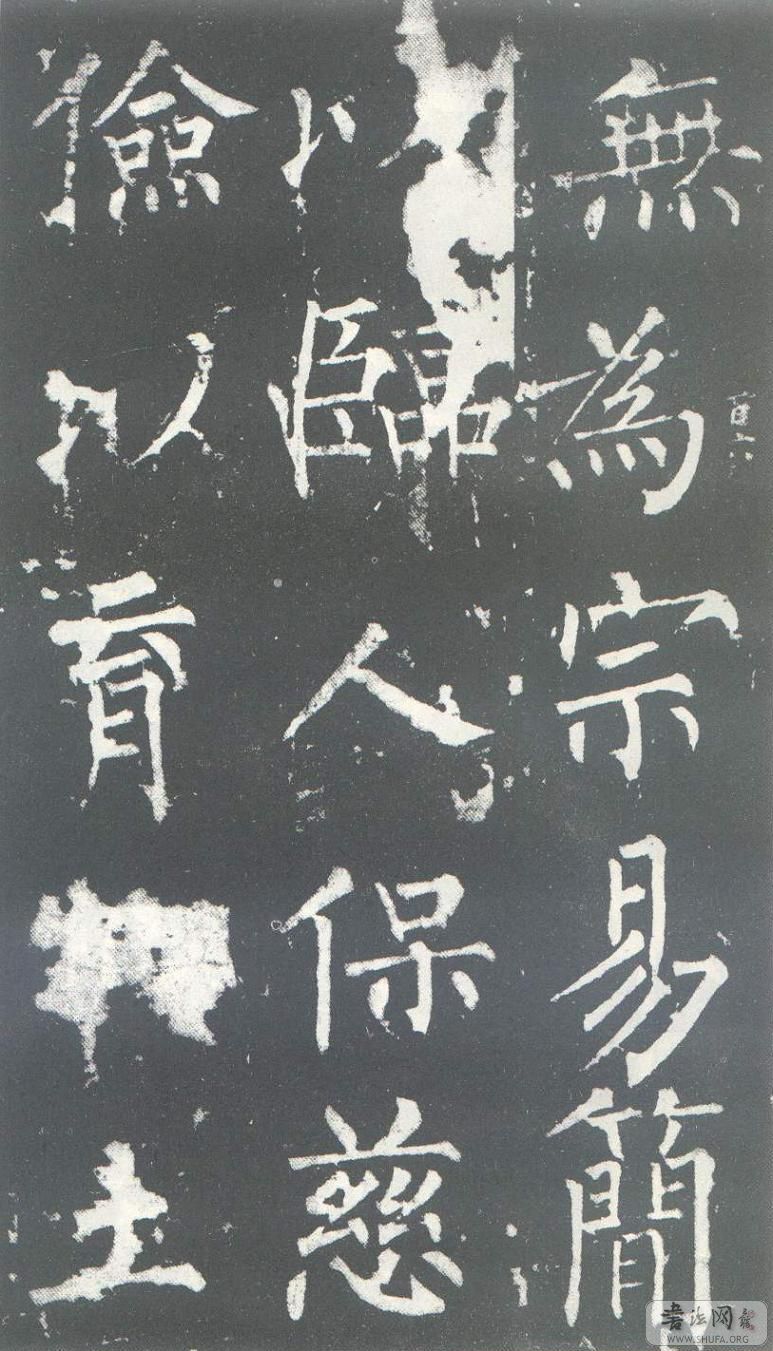 無為宗易簡
以臨人保慈
儉以育土
書法网
WWW.SHUFA.ORG